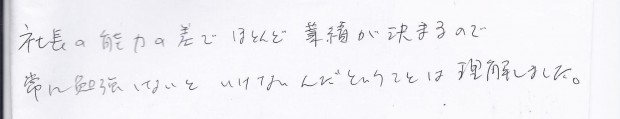 社長の能力の差でほとんど業績が決まるので
常に勉強しないといけないんだということは理解しました。